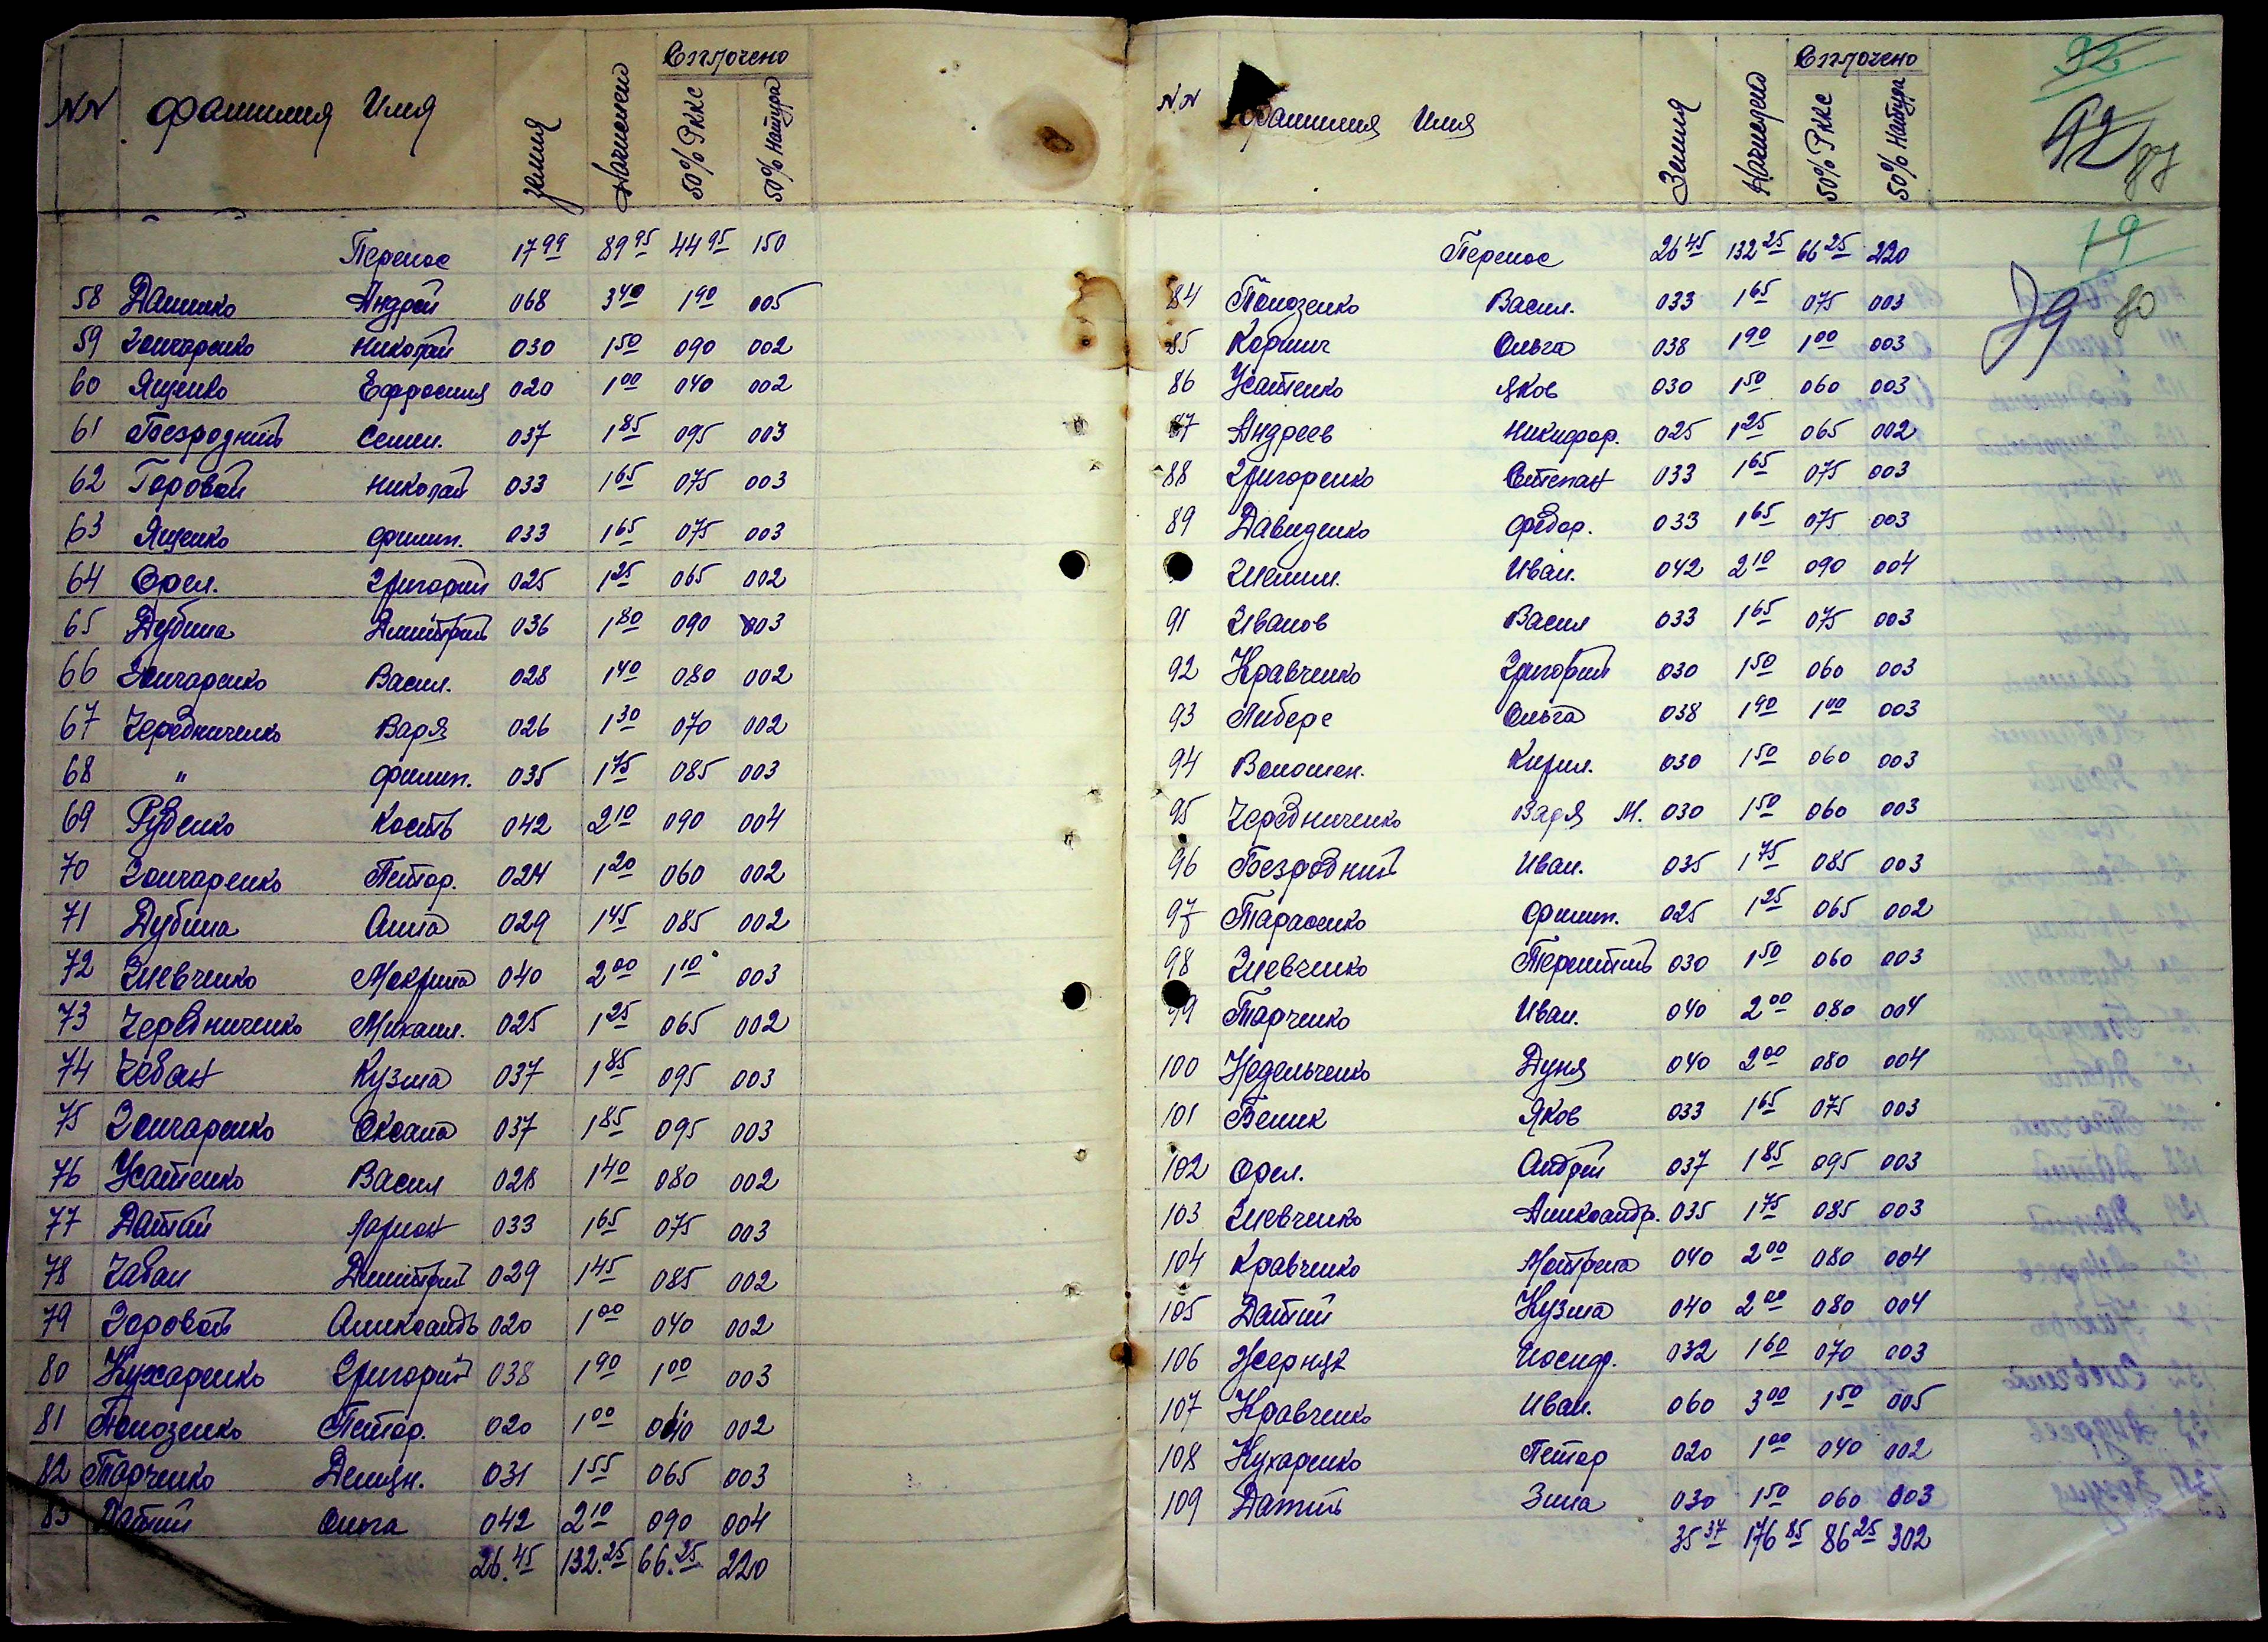 NN Фамилия Имя Земля Начислено Сплочено 50% Рккс 50% Натура
Перенос 17 99 89 95 44 95 150
58 Данилко Андрей 068 3 40 1 90 005
59 Гончаренко Николай 030 1 50 090 002
60 Ященко Ефросиния 020 1 00 040 002
61 Безродний Семен. 037 1 85 095 003
62 Горовой Николай 033 1 65 075 003
63 Ященко Филип. 033 1 65 075 003
64 Орел. Григорий 025 1 25 065 002
65 Дубина Дмитрий 036 1 80 090 003
66 Гончаренко Васил. 028 1 40 080 002
67 Чередниченко Варя 026 1 30 070 002
68 " Филип. 035 1 75 085 003
69 Руденко Кость 042 2 10 090 004
70 Гончаренко Петор. 024 1 20 060 002
71 Дубина Анна 029 1 45 085 002
72 Шевченко Мокрина 040 2 00 1 10 003
73 Чередниченко Михаил. 025 1 25 065 002
74 Чабан Кузма 037 1 85 095 003
75 Гончаренко Оксана 037 1 85 095 003
76 Усатенко Васил 028 1 40 080 002
77 Датий Ларион 033 1 65 075 003
78 Чабан Дмитрий 029 1 45 085 002
79 Горовой Александр 020 1 00 040 002
80 Кухаренко Григорий 038 1 90 1 00 003
81 Полозенко Петор. 020 1 00 040 002
82 Тарченко Демян. 031 1 55 065 003
83 Датий Ольга 042 2 10 090 004
26.45 132.25 66.25 220
NN Фамилия Имя Земля Начислено Сплочено 50% Рккс 50% Натура
92
92
19
79 80
Перенос 26 45 132 25 66 25 220
84 Полозенко Васил. 033 1 65 075 003
85 Коринч Ольга 038 1 90 1 00 003
86 Усатенко Яков 030 1 50 060 003
87 Андреев Никифор. 025 1 25 065 002
88 Григоренко Степан 033 1 65 075 003
89 Давиденко Федор. 033 1 65 075 003
Иван. 042 2 10 090 004
91 Иванов Васил 033 1 65 075 003
92 Кравченко Григорий 030 1 50 060 003
93 Либере Ольга 038 1 90 1 00 003
94 Волошен. Кирил. 030 1 50 060 003
95 Чередниченко Варя М. 030 1 50 060 003
96 Безродний Иван. 035 1 75 085 003
97 Тарасенко Филип. 025 1 25 065 002
98 Шевченко 030 1 50 060 003
99 Тарченко Иван. 040 2 00 080 004
100 Недельченко Дуня 040 2 00 080 004
101 Белик Яков 033 1 65 075 003
102 Орел. Андрей 037 1 85 095 003
103 Шевченко Александр. 035 1 75 085 003
104 Кравченко Мотрена 040 2 00 080 004
105 Датий Кузма 040 2 00 080 004
106 Жерняк Иосиф. 032 1 60 070 003
107 Кравченко Иван. 060 3 00 1 50 005
108 Кухаренко Петор 020 1 00 040 002
109 Датий Зина 030 1 50 060 003
35 37 176 85 86 25 302